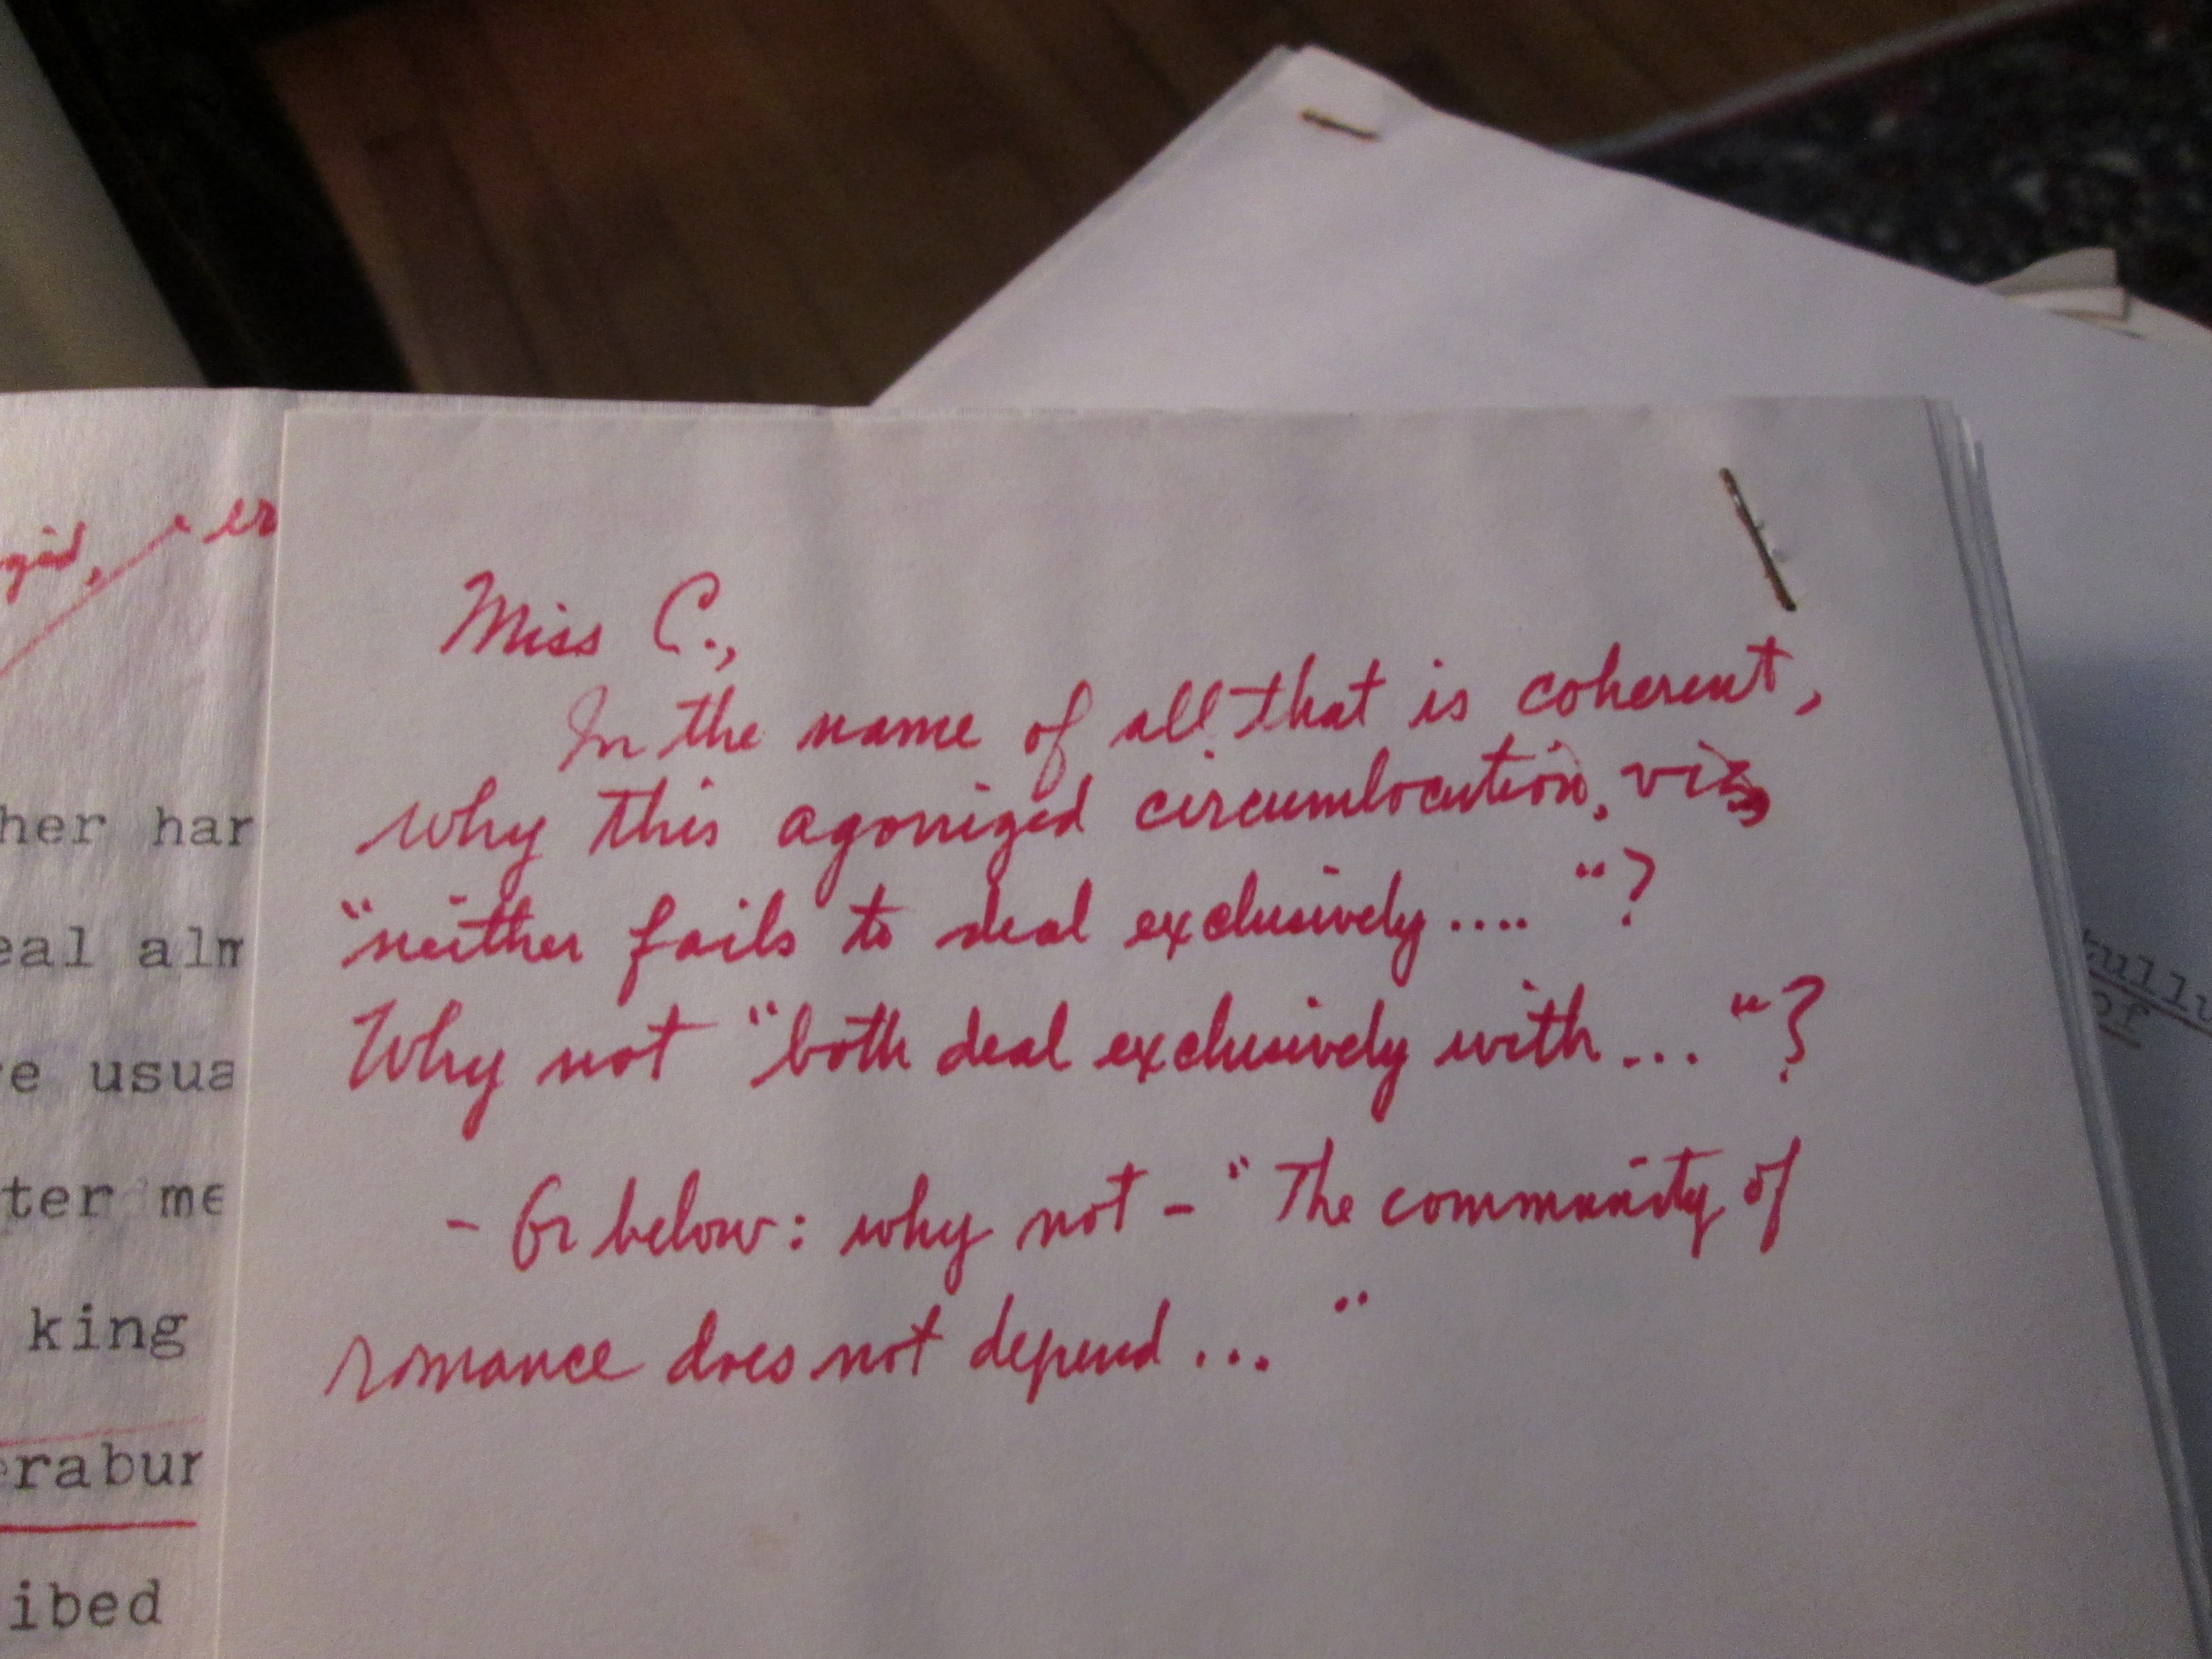 Miss C.,
In the name of all that is coherent,
why this agonized circumlocution, viz,
"neither fails to deal exclusively.... "?
Why not "both deal exclusively with... "?
- Or below: why not - "The community of
romance does not depend... "
her har
eal alm
e usua
ter me
king
rabur
ibed
of